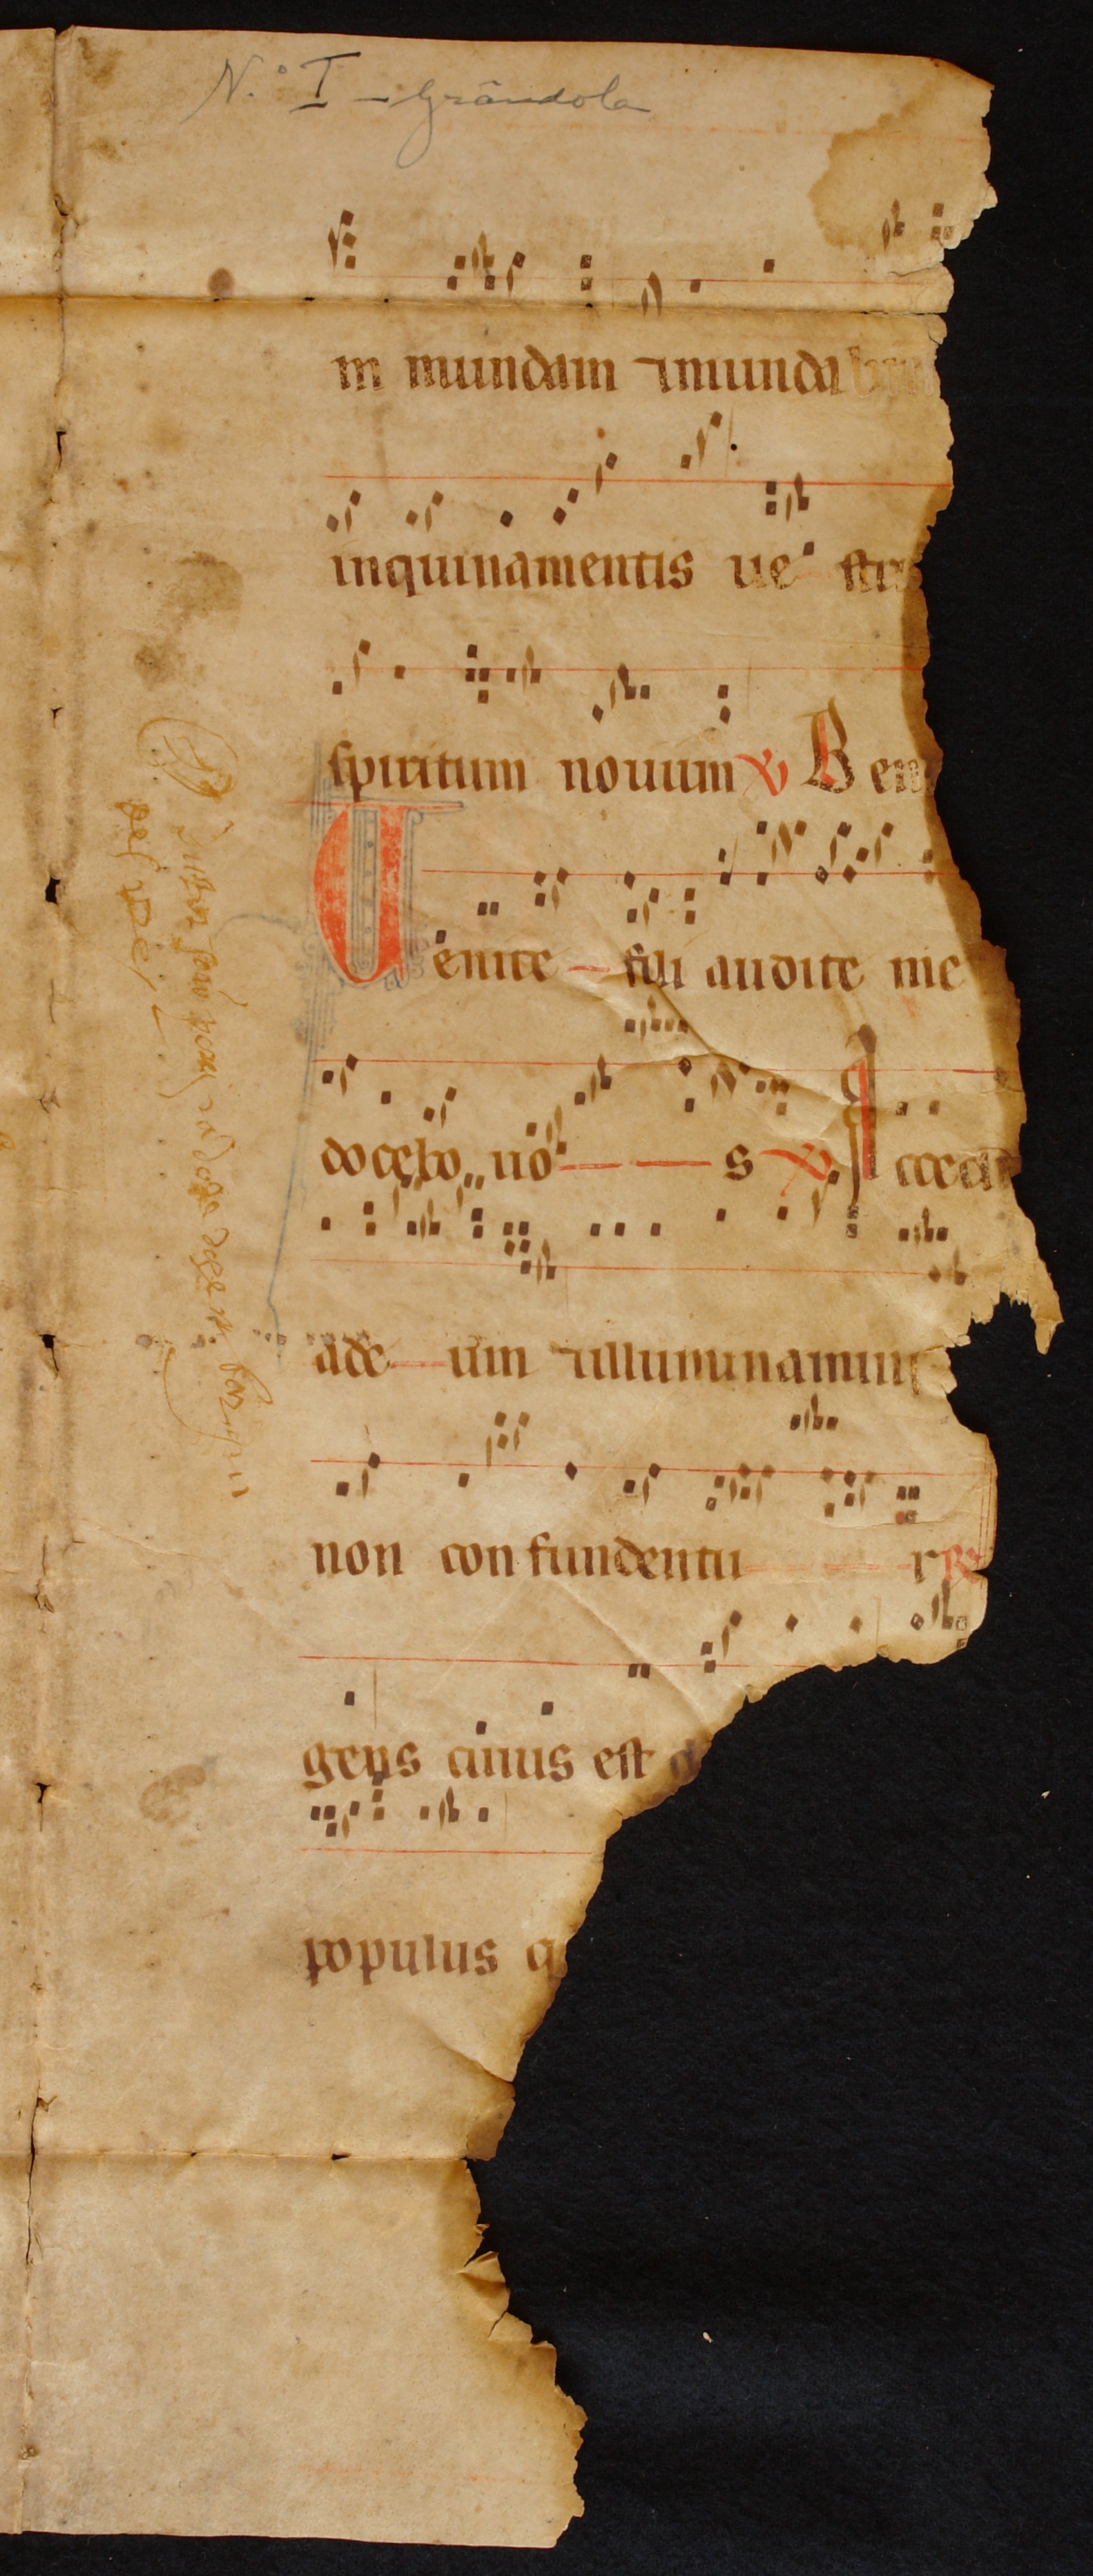 N.º I - Grândola
m mundam ⁊mundabi
inquinamentis ue stris
spiritum nouum ℣ Bene
Venite fili audite me
docebo uo s ℣ Acced
ade um ⁊illuminamini
non confundentu r
gens cuius est d
populus q